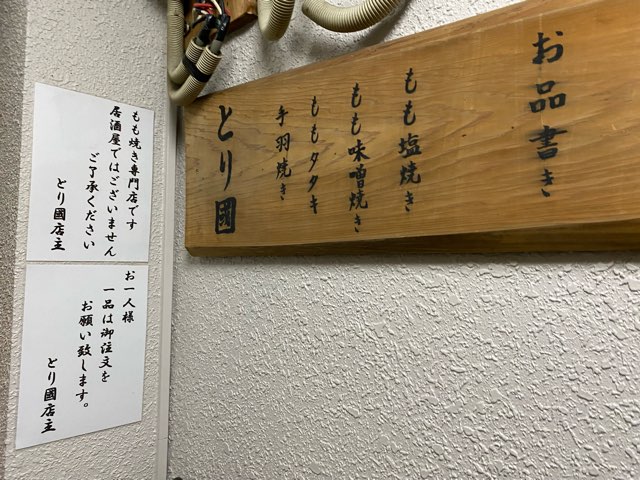 お品書き
もも塩焼き
もも味噌焼き
ももタタキ
手羽焼き
とり國
もも焼き専門店です
居酒屋ではございません
ご了承ください
とり國店主
お一人様
一品は御注文を
お願い致します。
とり國店主